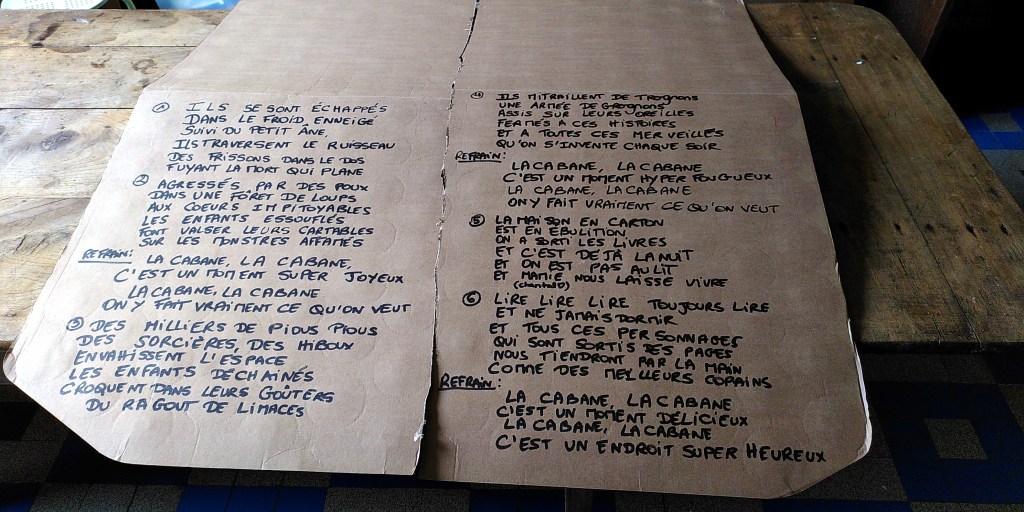 ① ILS SE SONT ÉCHAPPÉS
DANS LE FROID ENNEIGÉ
SUIVI DU PETIT ÂNE,
ILS TRAVERSENT LE RUISSEAU
DES FRISSONS DANS LE DOS
FUYANT LA MORT QUI PLANE
② AGRESSÉS PAR DES POUX
DANS UNE FÔRET DE LOUPS
AUX COEURS IMPITOYABLES
LES ENFANTS ESSOUFLÉS
FONT VALSER LEURS CARTABLES
SUR LES MONSTRES AFFAMÉS
REFRAIN:
LA CABANE, LA CABANE,
C'EST UN MOMENT SUPER JOYEUX
LA CABANE, LA CABANE
ON Y FAIT VRAIMENT CE QU'ON VEUT
③ DES MILLIERS DE PIOUS PIOUS
DES SORCIÈRES, DES HIBOUX
ENVAHISSENT L'ESPACE
LES ENFANTS DÉCHAINÉS
CROQUENT DANS LEURS GOÛTERS
DU RAGOUT DE LIMACES
④ ILS MITRAILLENT DE TROGNONS
UNE ARMÉE DE GROGNONS
ASSIS SUR LEURS OREILLES
FERMÉS A CES HISTOIRES
ET A TOUTES CES MERVEILLES
QU'ON S'INVENTE CHAQUE SOIR
REFRAIN:
LA CABANE, LA CABANE
C'EST UN MOMENT HYPER FOUGUEUX
LA CABANE, LA CABANE
ON Y FAIT VRAIMENT CE QU'ON VEUT
⑤ LA MAISON EN CARTON
EST EN ÉBULITION
ON A SORTI LES LIVRES
ET C'EST DÉJÀ LA NUIT
ET ON EST PAS AU LIT
ET MAMIE NOUS LAISSE VIVRE
(chantal)
⑥ LIRE LIRE LIRE TOUJOURS LIRE
ET NE JAMAIS DORMIR
ET TOUS CES PERSONNAGES
QUI SONT SORTIS DES PAGES
NOUS TIENDRONT PAR LA MAIN
COMME DES MEILLEURS COPAINS
REFRAIN:
LA CABANE, LA CABANE
C'EST UN MOMENT DÉLICIEUX
LA CABANE, LA CABANE
C'EST UN ENDROIT SUPER HEUREUX